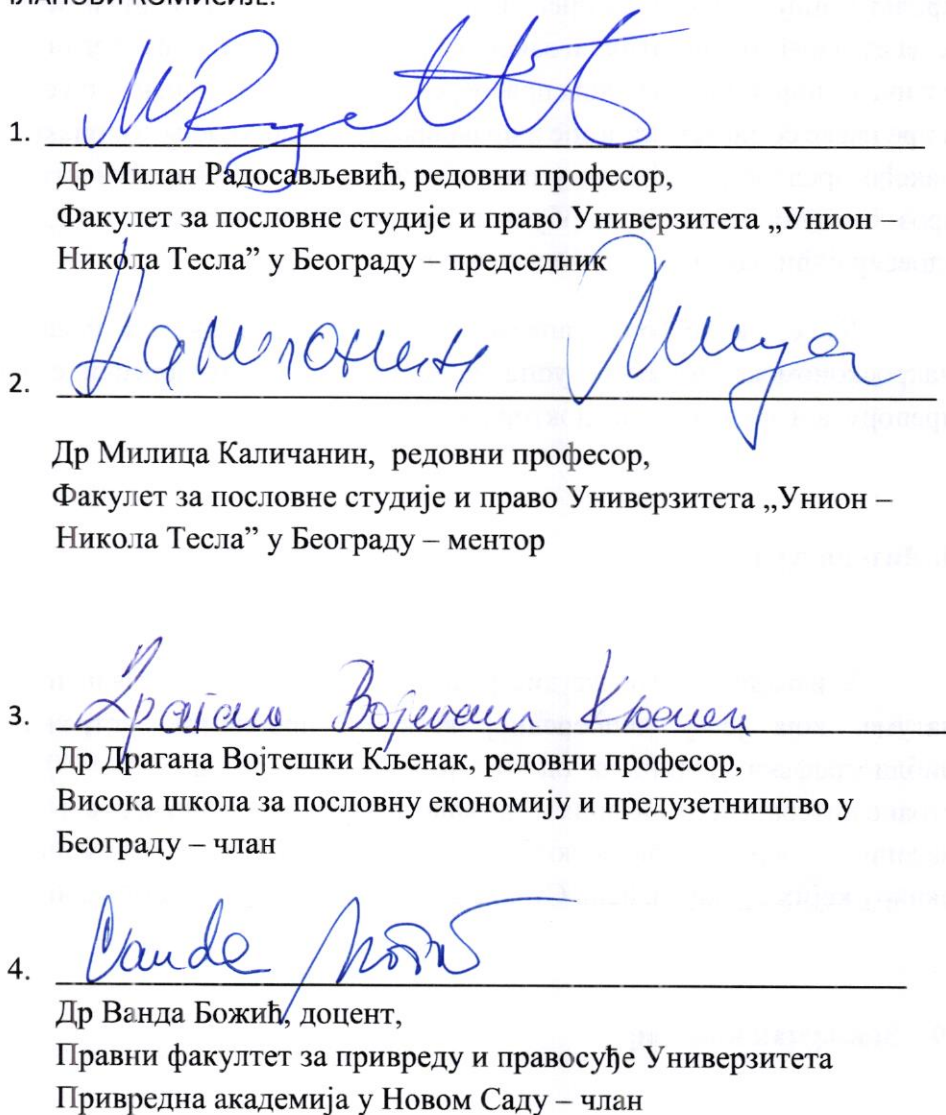 ЧЛАНОВИ КОМИСИЈЕ:
1.
Др Милан Радосављевић, редовни професор,
Факулет за пословне студије и право Универзитета „Унион –
Никола Тесла” у Београду – председник
2.
Др Милица Каличанин, редовни професор,
Факулет за пословне студије и право Универзитета „Унион –
Никола Тесла” у Београду – ментор
3. Драгана Војтешки Кљенак
Др Драгана Војтешки Кљенак, редовни професор,
Висока школа за пословну економију и предузетништво у
Београду – члан
4. Vanda
Др Ванда Божић, доцент,
Правни факултет за привреду и правосуђе Универзитета
Привредна академија у Новом Саду – члан